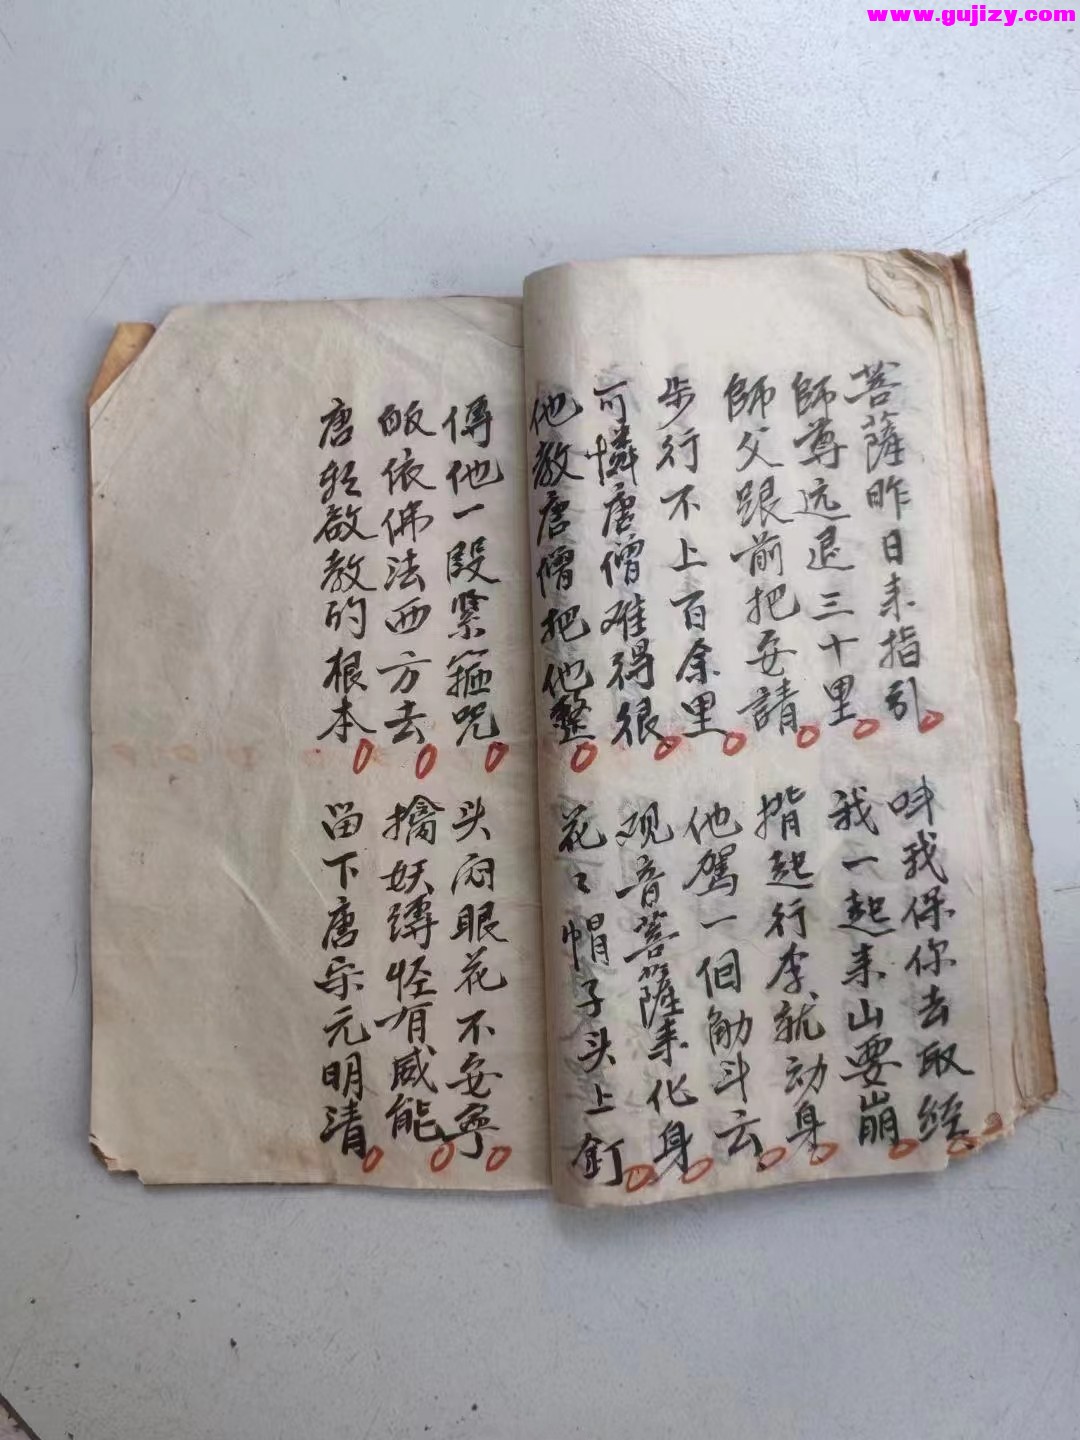 www.gujizy.com
菩薩昨日来指引
叫我保你去取經
師尊远退三十里
我一起来山要崩
師父跟前把安請
揹起行李就动身
步行不上百余里
他驾一個觔斗云
可憐唐僧难得很
观音菩薩来化身
他教唐僧把他整
花々帽子头上釘
傳他一段紧箍咒
头闷眼花不安寧
皈依佛法西方去
擒妖縛怪有威能
唐朝啟教的根本
畄下唐宋元明清